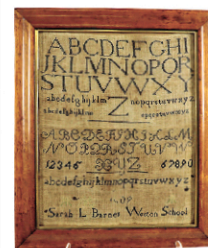 ABCDEFGHI
JKLMNOPQR
STUVWXY
abcdefghijklm Z nopqrstuvwxyz
abcdefghijklm nopqrstuvwxyz
ABCDEFGHIJKLM
NOPQRSTUVW
12345 Z 67890
abcdefghijklmnopqrstuvwxyz
Sarah L Barnes Weston School